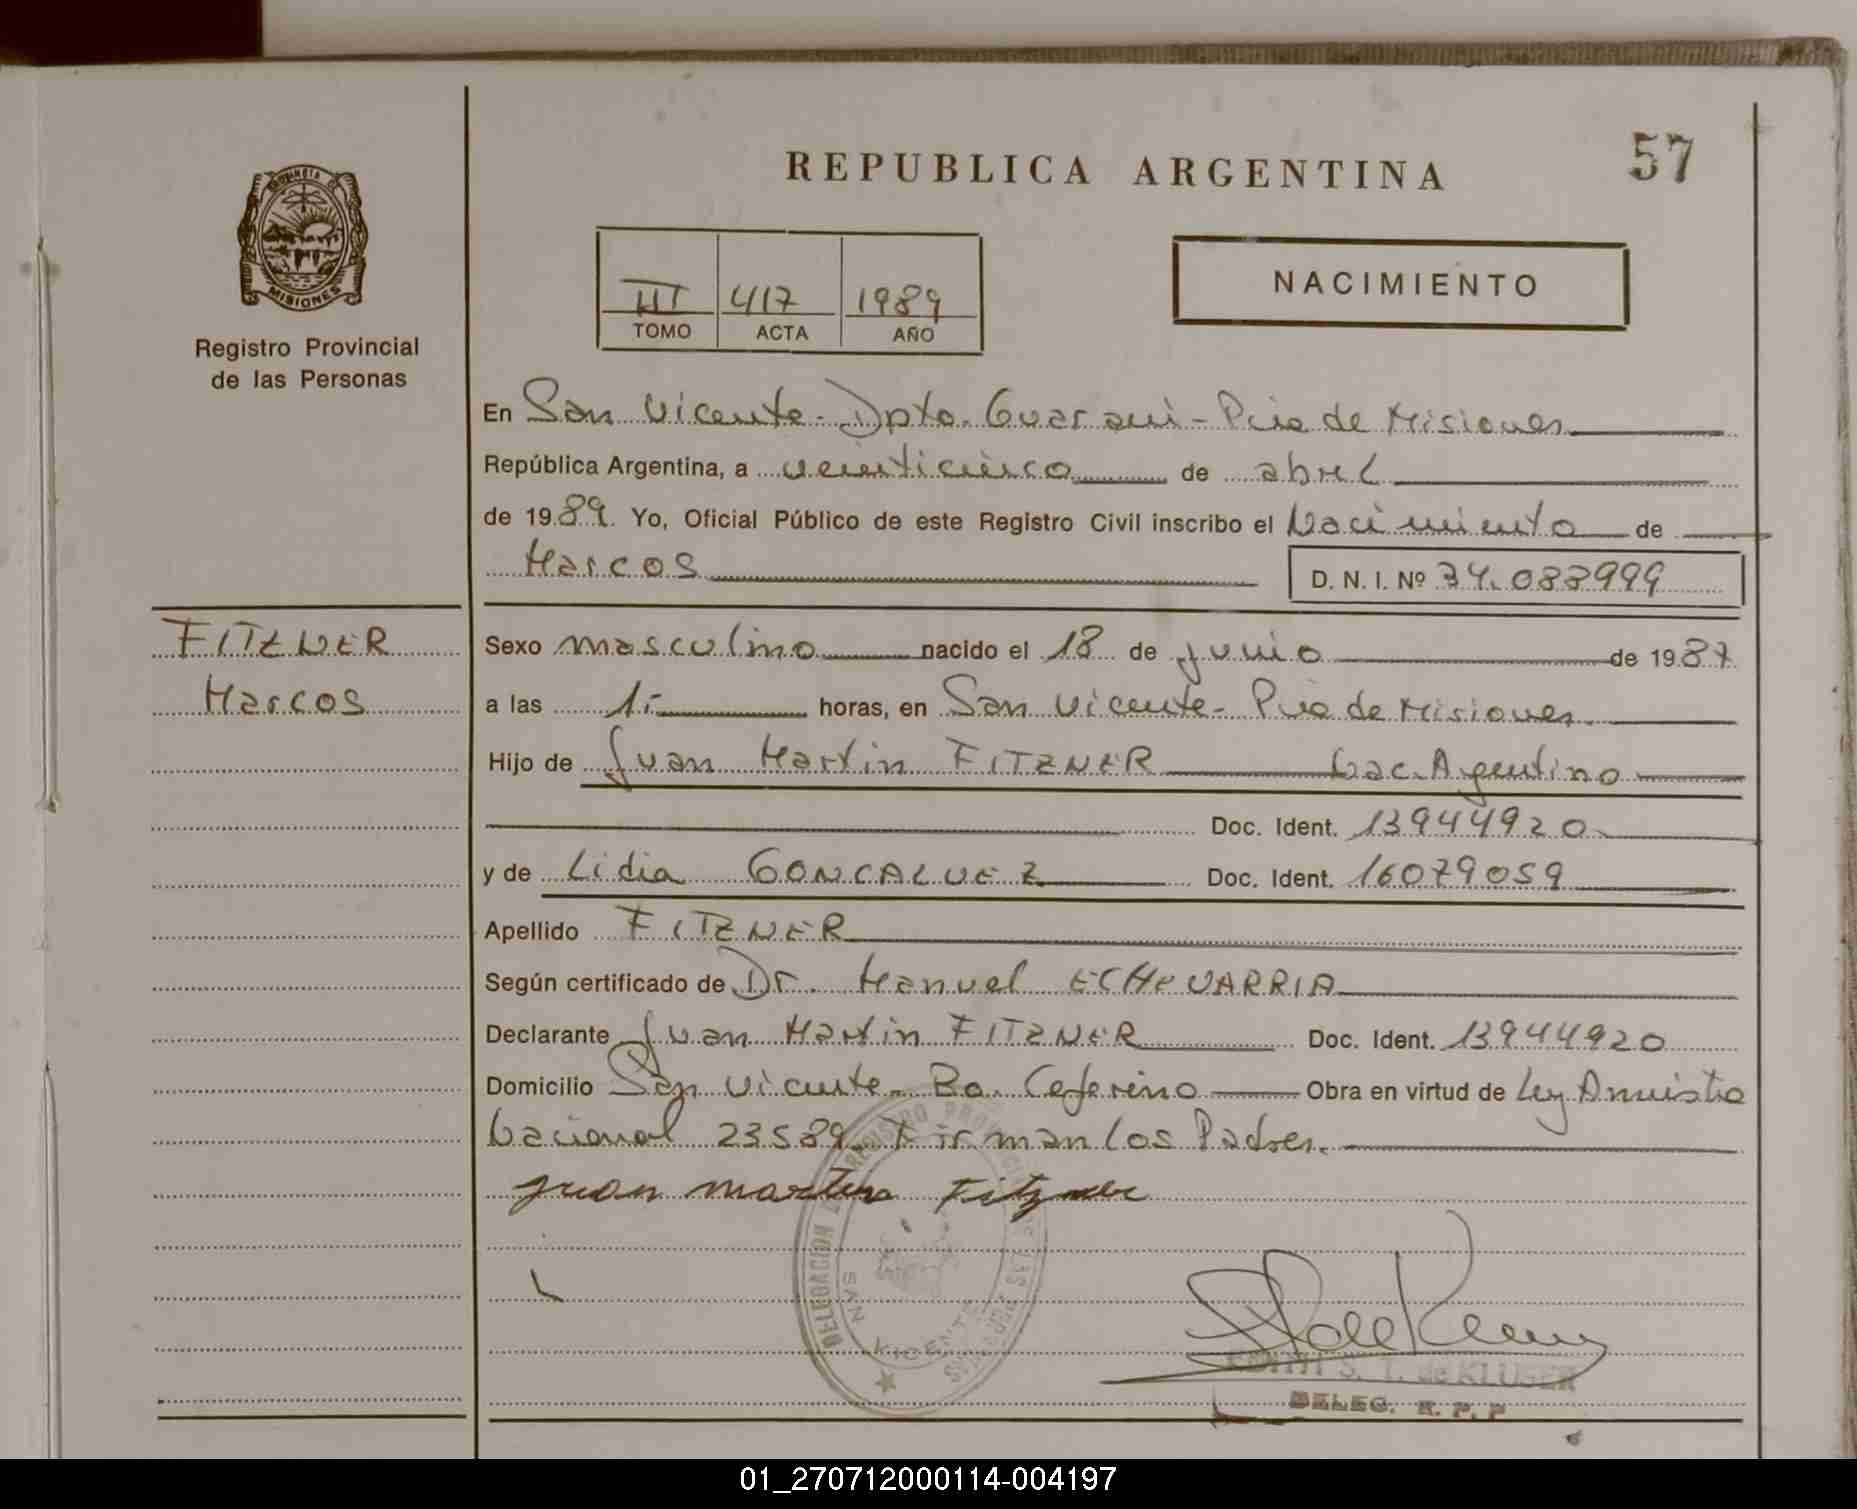 57
REPUBLICA ARGENTINA
MISIONES
Registro Provincial
de las Personas
III 417 1989
TOMO ACTA AÑO
NACIMIENTO
En San Vicente - Dpto. Guarani - Pcia de Misiones
República Argentina, a veinticinco de abril
de 1989. Yo, Oficial Público de este Registro Civil inscribo el Nacimiento de
Marcos D. N. I. Nº 34.083999
FITZNER
Marcos
Sexo masculino nacido el 18 de junio de 1987
a las 1.- horas, en San Vicente - Pcia de Misiones.
Hijo de Juan Martin FITZNER Nac. Argentino
Doc. Ident. 13944920
y de Lidia GONCALVEZ Doc. Ident. 16079059
Apellido FITZNER
Según certificado de Dr. Manuel ECHEVARRIA
Declarante Juan Martin FITZNER Doc. Ident. 13944920
Domicilio San Vicente - Bo. Ceferino Obra en virtud de Ley Amnistia
Nacional 23589. Firman los Padres.
Juan martin Fitzner
DELEGACION REGISTRO PROVINCIAL DE LAS PERSONAS
SAN VICENTE
S. T. de KLUSER
DELEG. R. P. P
01_270712000114-004197